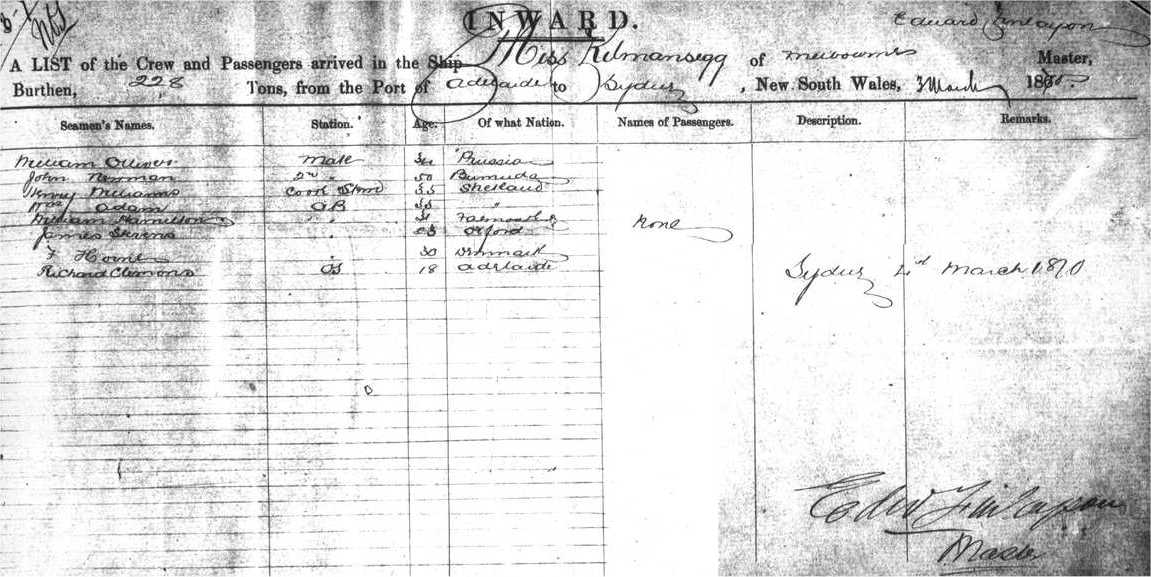 INWARD.
Edward Finlayson
A LIST of the Crew and Passengers arrived in the Ship Miss Kilmansegg of Melbourne Master,
Burthen, 228 Tons, from the Port of Adelaide to Sydney, New South Wales, 3 March 1870.
Seamen's Names. Station. Age. Of what Nation. Names of Passengers. Description. Remarks.
William Mate Prussian
John Newman 2nd " 50 Bermuda
Henry Williams Cook Stewd 35 Shetland
Adam AB 35 "
William Hamilton " Falmouth
James Stevens " Oxford
None
F Horne " 30 Denmark
Richard Clemons OS 18 Adelaide
Sydney 4th March 1870
Edwd Finlayson
Master